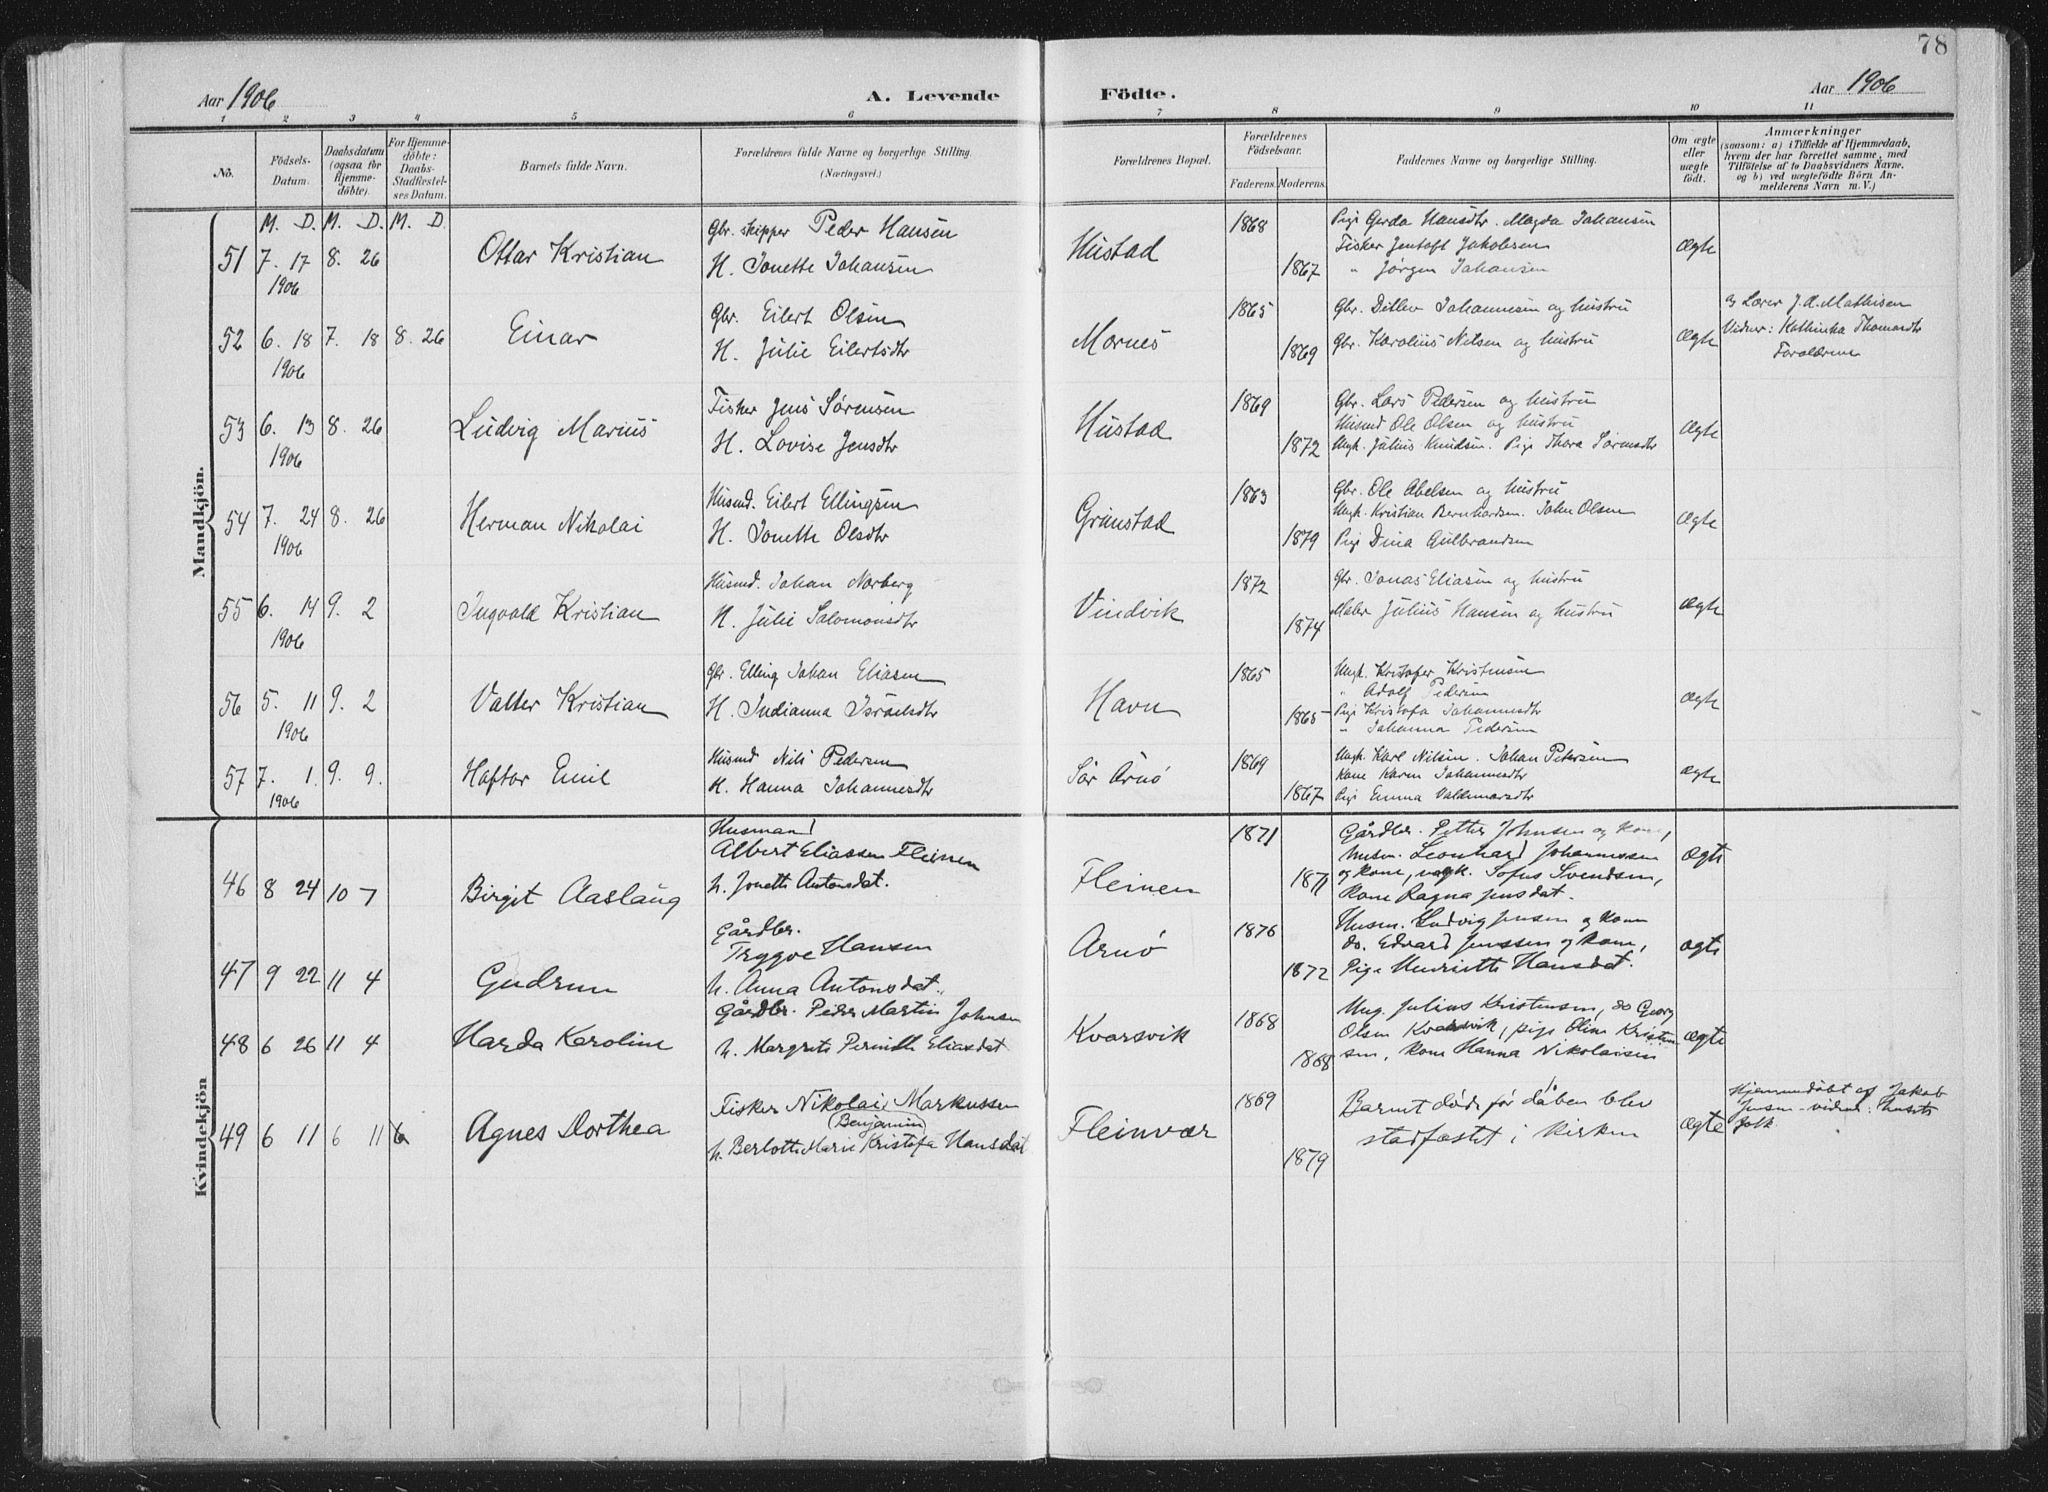 78
Aar 1906 A. Levende Födte. Aar 1906
1 2 3 4 5 6 7 8 9 10 11
No.
Födsels-
Datum.
Daabsdatum
(ogsaa for
Hjemme-
döbte).
For Hjemme-
döbte:
Daabs-
Stadfæstel-
ses Datum.
Barnets fulde Navn.
Forældrenes fulde Navne og borgerlige Stilling.
(Næringsvei.)
Forældrenes Bopæl.
Forældrenes
Födselsaar.
Faderens. Moderens.
Faddernes Navne og borgerlige Stilling.
Om ægte
eller
uægte
født.
Anmærkninger
(saasom: a) i Tilfælde af Hjemmedaab,
hvem der har forrettet samme, med
Tilföielse af to Daabsvidners Navne.
og b) ved uægtefödte Börn An-
melderens Navn m. V.)
Mandkjön.
M. D. M. D. M. D.
51 7. 17 8. 26
1906
Ottar Kristian
Gbr. skipper Peder Hansen
H. Jonette Johansen
Hustad
1868
1867
Pige Gerda Hansdtr. Magda Johansen
Fisker Jentoft Jakobsen
" Jørgen Johansen
Ægte
52 6. 18 7. 18 8. 26
1906
Einar
Gbr. Eilert Olsen
H. Julie Eilertsdtr
Mornes
1865
1869
Gbr. Ditlev Johannesen og hustru
Gbr. Karolius Nilsen og hustru
Ægte
Lærer J. A. Mathisen
Vidner: Kathinka Thomasdtr
Forældrene
53 6. 13 8. 26
1906
Ludvig Marius
Fisker Jens Sørensen
H. Lovise Jensdtr
Hustad
1869
1872
Gbr. Lars Pedersen og hustru
Husmd Ole Olsen og hustru
Ungk. Julius Knudsen. Pige Thora Sørensdtr
Ægte
54 7. 24 8. 26
1906
Herman Nikolai
Husmd. Eilert Ellingsen
H. Jonette Olsdtr
Grimstad
1863
1879
Gbr. Ole Abelsen og hustru
Ungk. Kristian Bernhardsen. John Olsen
Pige Dina Gulbrandsen
Ægte
55 6. 14 9. 2
1906
Ingvald Kristian
Husmd. Johan Norberg
H. Julie Salomonsdtr
Vindvik
1872
1874
Gbr. Jonas Eliasen og hustru
Maler Julius Hansen og hustru
Ægte
56 5. 11 9. 2
1906
Valter Kristian
Gbr. Elling Johan Eliasen
H. Indianna Israelsdtr
Havn
1865
1865
Ungk. Kristofer Kristensen
" Adolf Pedersen
Pige Kristofa Johannesdtr
" Johanna Pedersen
Ægte
57 7. 1. 9. 9.
1906
Haftor Emil
Husmd Nils Pedersen
H. Hanna Johannesdtr
Sør Arnø
1869
1867
Ungk. Karl Nilsen. Johan Petersen
Kone Karen Johannesdtr
Pige Emma Valdemarsdtr
Ægte
Kvindekjön
46 8 24 10 7
Birgit Aaslaug
Husmand
Albert Eliassen Fleinen
h. Jonette Antonsdat.
Fleinen
1871
1871
Gårdbr. Petter Johnsen og kone,
husm. Leonhard Johannessen
og kone, ungk. Sofus Svendsen,
kone Ragna Jensdat.
ægte
47 9 22 11 4
Gudrun
Gårdbr.
Tryggve Hansen
h. Anna Antonsdat.
Arnø
1876
1872
Husm. Ludvig Jensen og kone
do. Edvard Jenssen og kone,
Pige Henriette Hansdat.
ægte
48 6 26 11 4
Harda Karoline
Gårdbr. Peder Martin Johnsen
h. Margrete Pernille Eliasdat
Kvarsvik
1868
1868
Ung. Julius Kristensen, do Georg
Olsen Kvarsvik, pige Oline Kristen-
sen, kone Hanna Nikolaisen
ægte
49 6 11 6 11 6
Agnes Dorthea
Fisker Nikolai Markussen
(Benjamin)
h. Berlotte Marie Kristofa Hansdat
Fleinvær
1869
1879
Barnet døde før dåben blev
stadfæstet i kirken
Ægte
Hjemmedøbt af Jakob
Jensen - vidner: husets
folk.